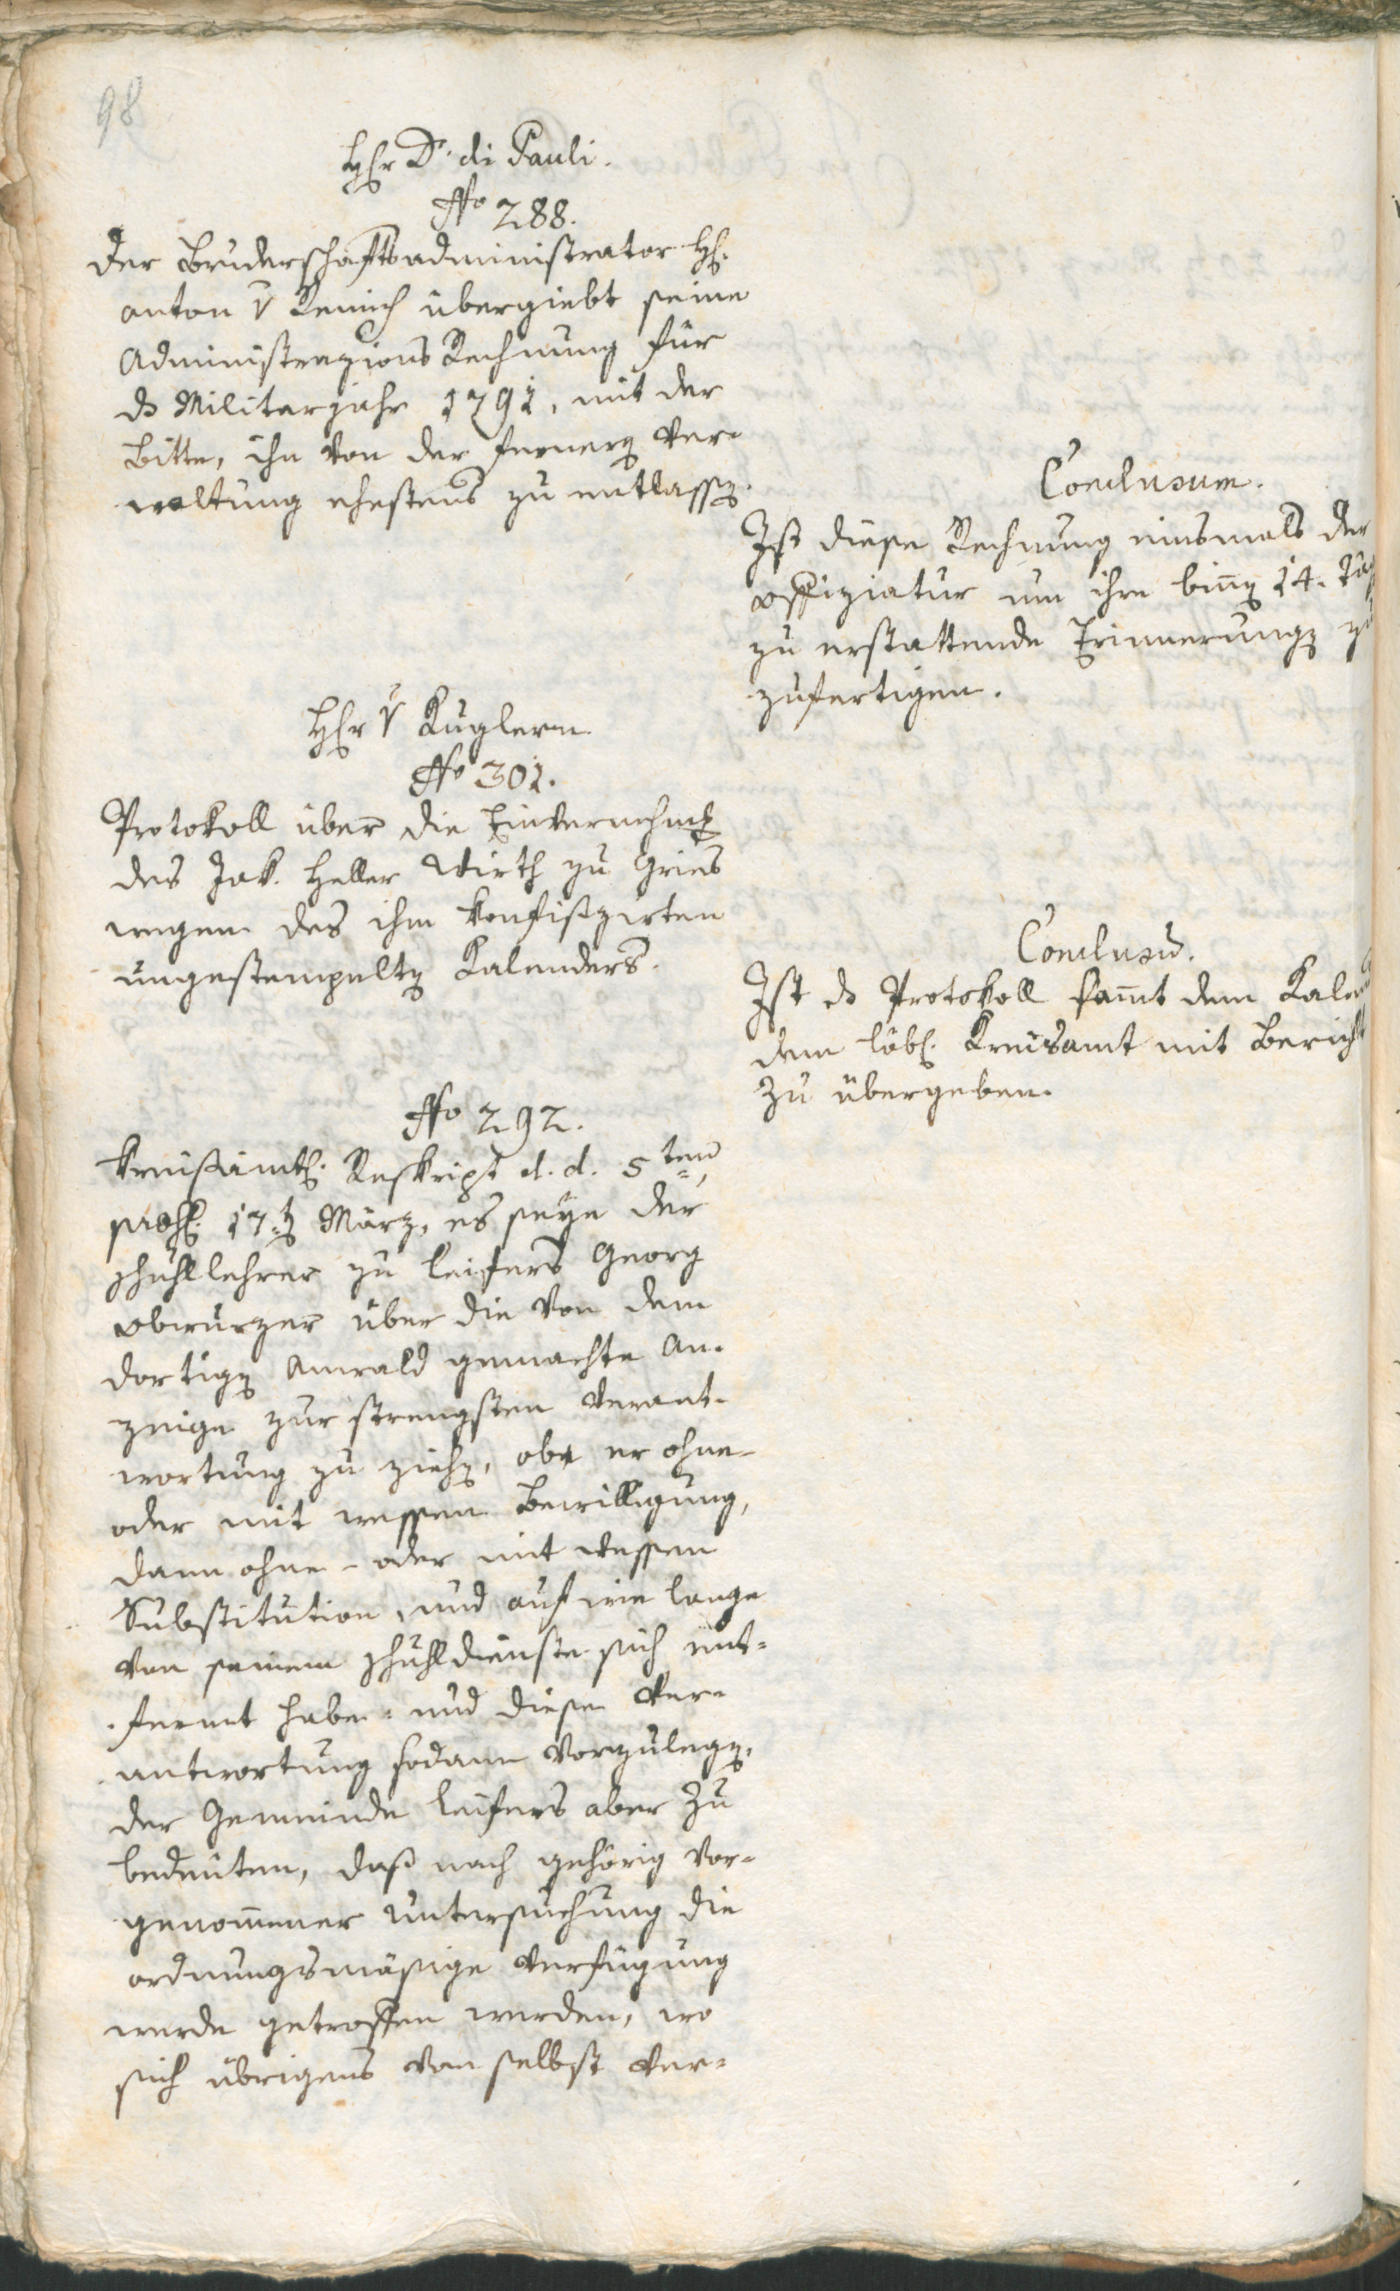 98
Hr D. di Pauli.
No 288.
Der Bruderschaftsadministrator H.
Anton v Remich übergiebt seine
Administrazions Rechnung für
ds Militarjahr 1791, mit der
Bitte, ihn von der fernern Ver-
waltung ehestens zu entlassen.
Conclusum.
Ist diese Rechnung einsmals der
Offiziatur um ihre binnen 14. Täg
zu erstattende Erinnerungen zu
zufertigen.
Hr v Kuglern
No 301.
Protokoll über die Einvernehmung
des Jak. Heller Wirth zu Gries
wegen des ihm konfiszirten
ungestempelten Kalenders.
Conclusum.
Ist ds Protokoll sammt dem Kalen
dem löbl. Kreisamt mit Bericht
zu übergeben.
No 292.
Kreisämtl. Reskript d. d. 5ten
praes. 17.ten März, es seye der
Schullehrer zu Leifers Georg
Obwurzer über die von dem
dortigen Anwald gemachte An-
zeige zur strengsten Verant-
wortung zu ziehen, ober er ohne-
oder mit wessen Bewilligung,
dann ohne- oder mit wessen
Substitution, und auf wie lange
von seinem Schuldienste sich ent-
fernt habe: und diese Ver-
antwortung sodann vorzulegen,
der Gemeinde Leifers aber zu
bedeuten, daß nach gehörig vor-
genommener Untersuchung die
ordnungsmäßige Verfügung
werde getroffen werden, wo
sich übrigens von selbst ver-